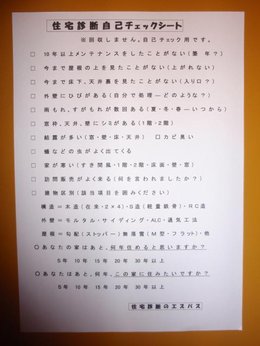 住宅診断自己チェックシート
※回収しません。自己チェック用です。
□ 10年以上メンテナンスをしたことがない(築 年?)
□ 今まで屋根の上を見たことがない(上がれない)
□ 今まで床下、天井裏を見たことがない(入り口?)
□ 外壁にひびがある(自分で処理―どのような?)
□ 雨もれ、すがもれが数回ある(夏・冬・春―いつから)
□ 窓枠、天井、壁にシミがある(1階・2階)
□ 結露が多い(窓・壁・床・天井) □カビ臭い
□ 蟻などの虫がよく出てくる
□ 家が寒い(すき間風・1階・2階・床面・壁・窓)
□ 訪問販売がよく来る(何を言われましたか?)
□ 建物区別(該当項目を囲みください)
構造=木造(在来・2×4)・S造(軽量鉄骨)・RC造
外壁=モルタル・サイディング・ALC・通気工法
屋根=勾配(ストッパー)無落雪(M型・フラット)・他
○あなたの家はあと、何年住めると思いますか?
5年 10年 15年 20年 30年以上
○あなたはあと、何年、この家に住みたいですか?
5年 10年 15年 20年 30年以上
住宅診断のエスパス